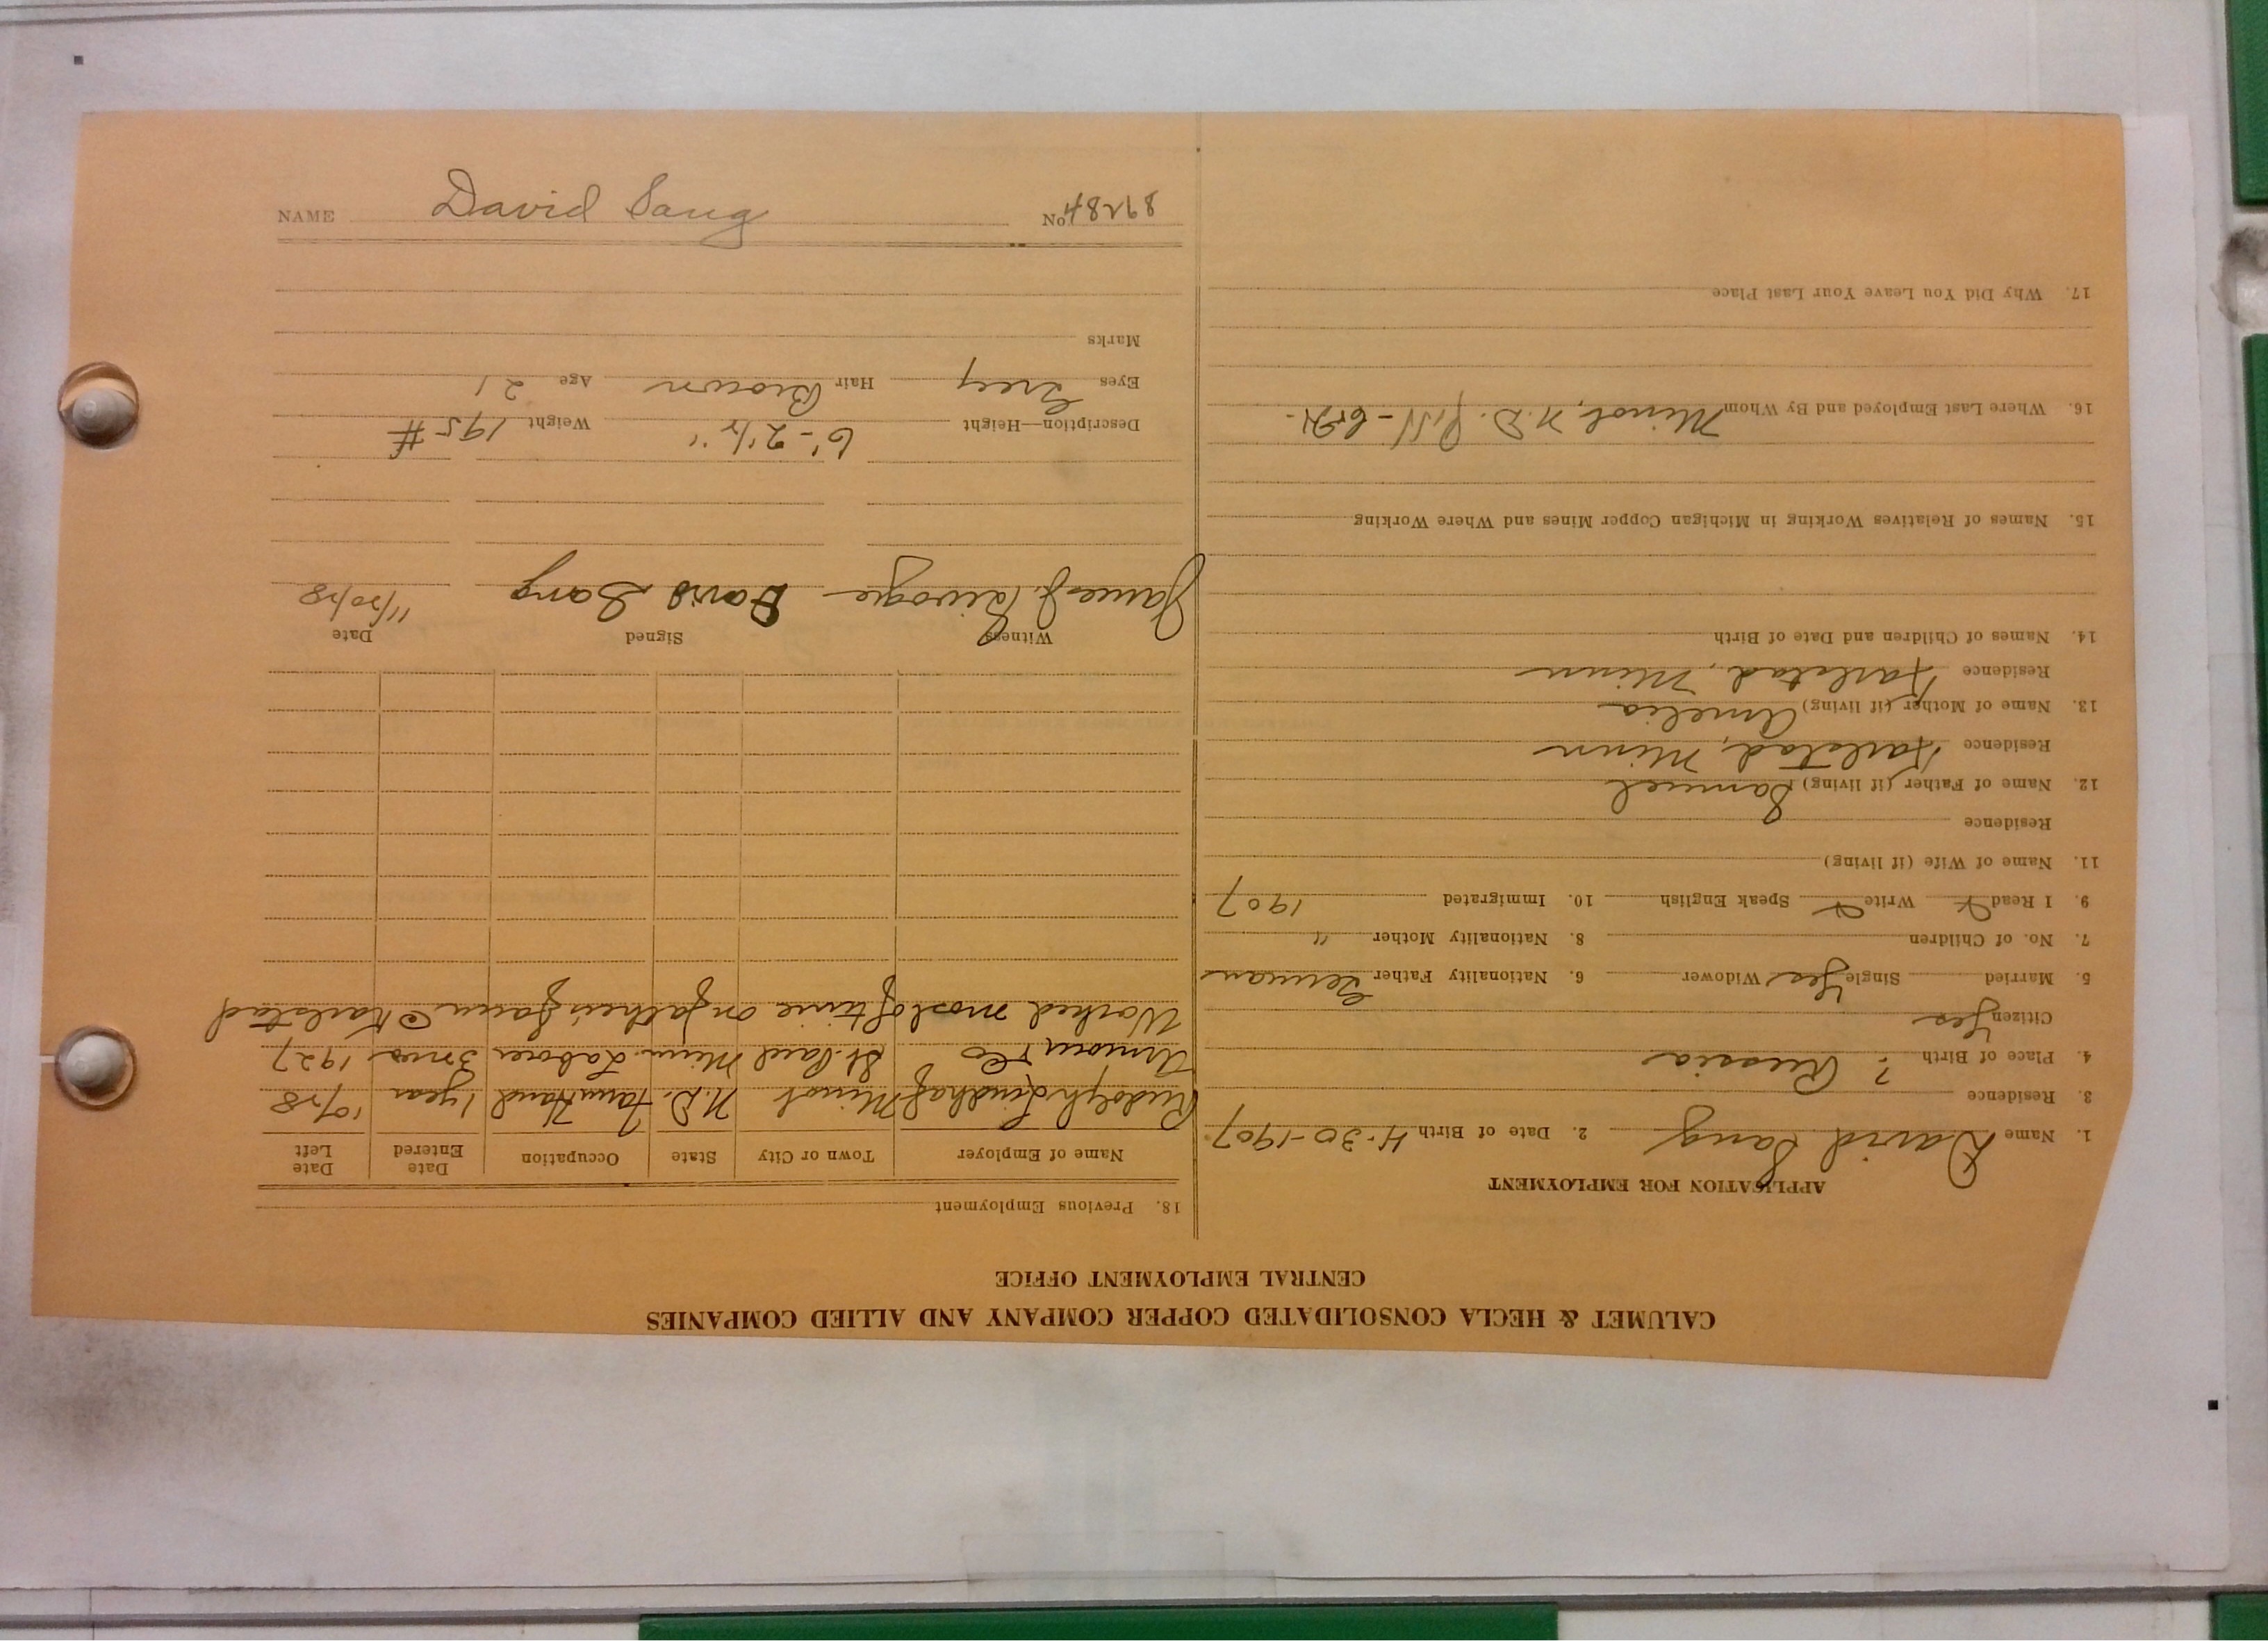 CALUMET & HECLA CONSOLIDATED COPPER COMPANY AND ALLIED COMPANIES
CENTRAL EMPLOYMENT OFFICE
APPLICATION FOR EMPLOYMENT
1. Name David Sang 2. Date of Birth 4-30-1907
3. Residence
4. Place of Birth ? Russia
Citizen Yes
5. Married Single Yes Widower 6. Nationality Father German
7. No. of Children 8. Nationality Mother "
9. I Read Write Speak English 10. Immigrated 1907
11. Name of Wife (if living)
Residence
12. Name of Father (if living) Samuel
Residence Karlstad, Minn
13. Name of Mother (if living) Amelia
Residence Karlstad, Minn
14. Names of Children and Date of Birth
15. Names of Relatives Working in Michigan Copper Mines and Where Working
16. Where Last Employed and By Whom Minot, N.D.
17. Why Did You Leave Your Last Place
18. Previous Employment
Name of Employer Town or City State Occupation Date Entered Date Left
Rudolph Minot N.D. Farm Hand 1 year 10/28
Armour & Co St. Paul Minn. Laborer 3 mos 1927
Worked most of time on father's farm @ Karlstad
Witness Signed Date
James J. David Sang 11/30/28
Description—Height 6'-2½" Weight 195#
Eyes Grey Hair Brown Age 21
Marks
NAME David Sang No 89284